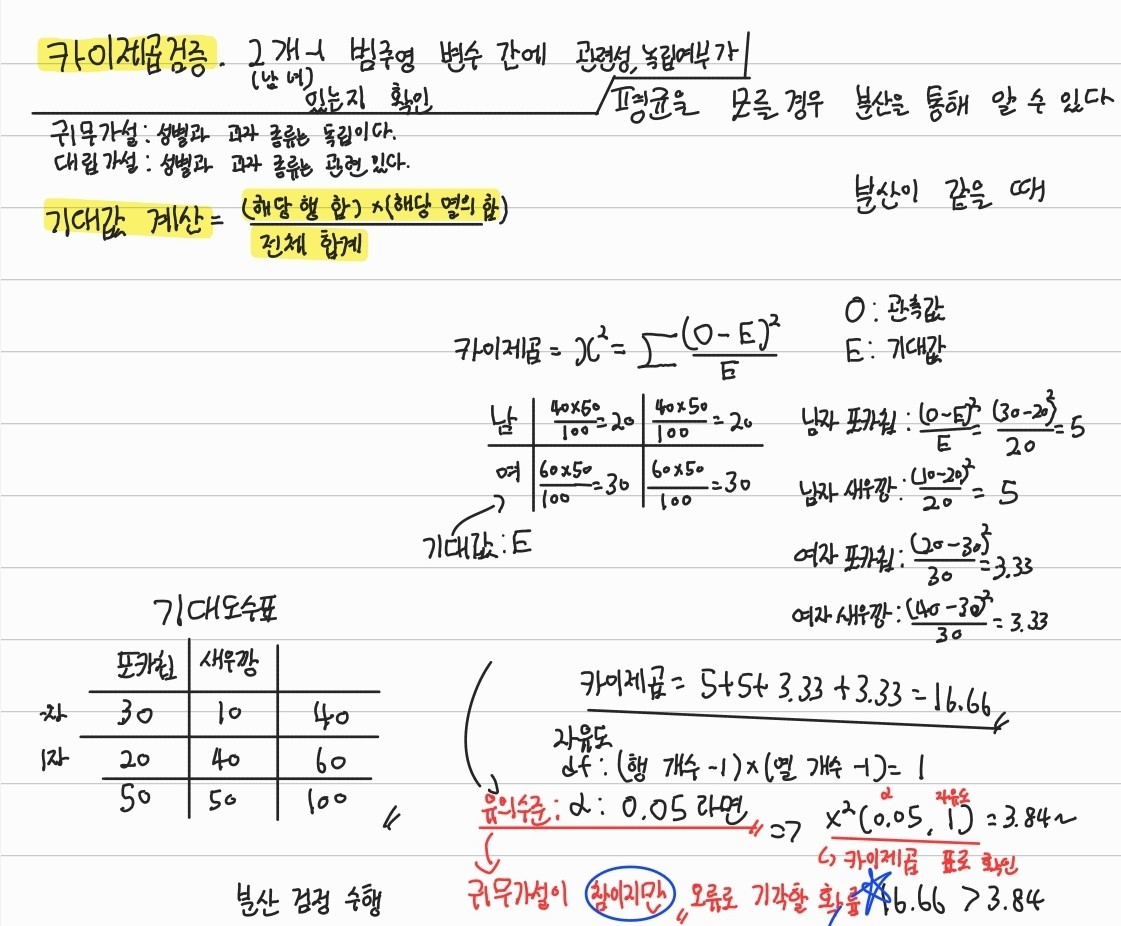 카이제곱검증. 2개 범주영 변수 간에 관련성, 독립여부가
(남 녀)
있는지 확인
평균을 모를 경우 분산을 통해 알 수 있다
귀무가설 : 성별과 과자 종류는 독립이다.
대립가설 : 성별과 과자 종류는 관련있다.
분산이 같을 때
기대값 계산 = (해당 행 합) x (해당 열의 합)
전체 합계
O : 관측값
E : 기대값
카이제곱 = χ² = ∑ (O-E)² / E
남 40x50/100 = 20 40x50/100 = 20
여 60x50/100 = 30 60x50/100 = 30
기대값 : E
남자 포카칩 : (O-E)²/E = (30-20)²/20 = 5
남자 새우깡 : (10-20)²/20 = 5
여자 포카칩 : (20-30)²/30 = 3.33
여자 새우깡 : (40-30)²/30 = 3.33
기대도수표
포카칩 새우깡
자 30 10 40
자 20 40 60
50 50 100
카이제곱 = 5+5+3.33+3.33 = 16.66
자유도
df : (행 개수 -1) x (열 개수 -1) = 1
유의수준 : α : 0.05 라면 => x²(0.05, 1) = 3.84~
α 자유도
카이제곱 표로 확인
귀무가설이 참이지만 오류로 기각할 확률
16.66 > 3.84
분산 검정 수행